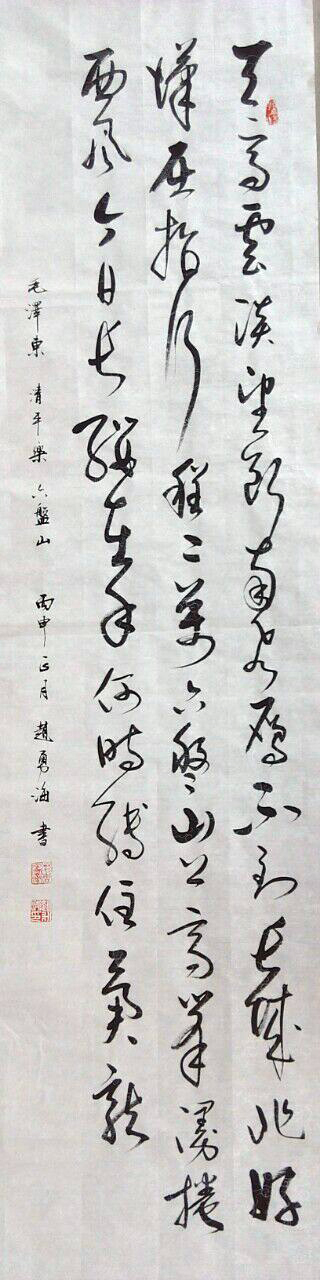 天高雲淡望斷南飛雁不到長城非好
漢屈指行程二萬六盤山上高峯漫捲
西風今日長纓在手何時縛住蒼龍
毛澤東 清平樂 六盤山 丙申正月 趙勇海 書